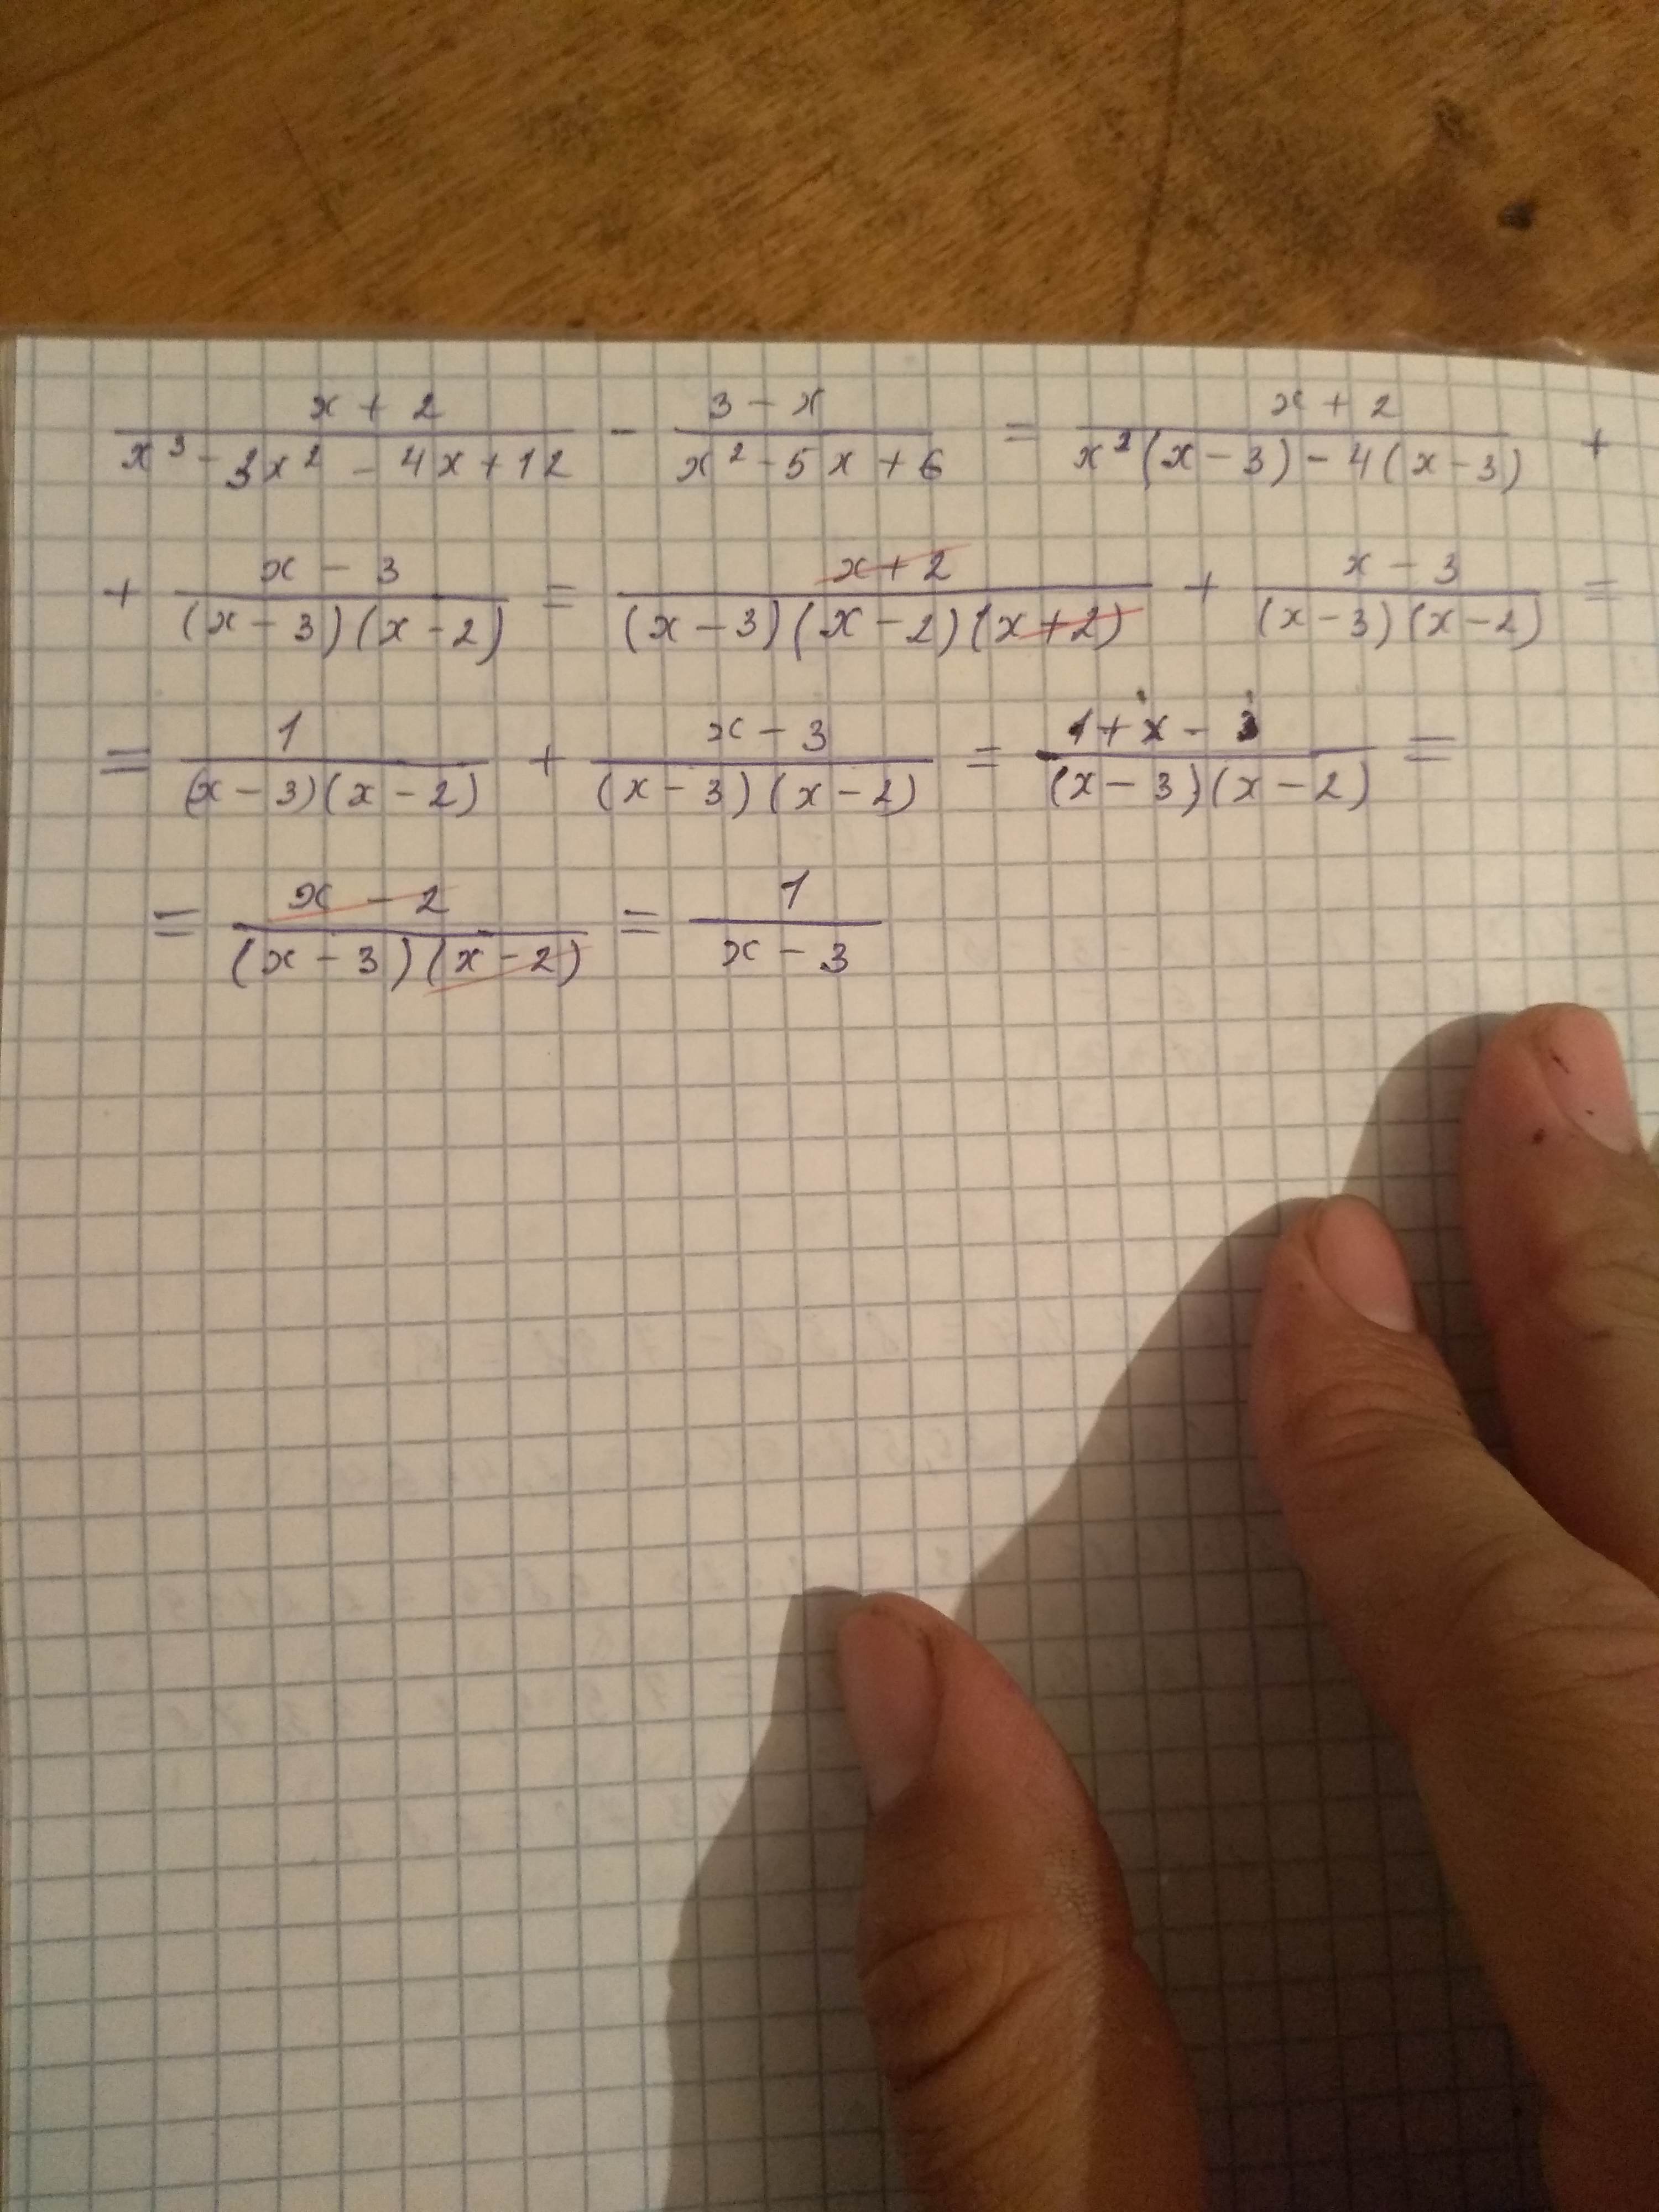 (x + 2)/(x³ - 3x² - 4x + 12) - (3 - x)/(x² - 5x + 6) = (x + 2)/(x²(x - 3) - 4(x - 3)) +
+ (x - 3)/((x - 3)(x - 2)) = (x + 2)/((x - 3)(x - 2)(x + 2)) + (x - 3)/((x - 3)(x - 2)) =
= 1/((x - 3)(x - 2)) + (x - 3)/((x - 3)(x - 2)) = (1 + x - 3)/((x - 3)(x - 2)) =
= (x - 2)/((x - 3)(x - 2)) = 1/(x - 3)